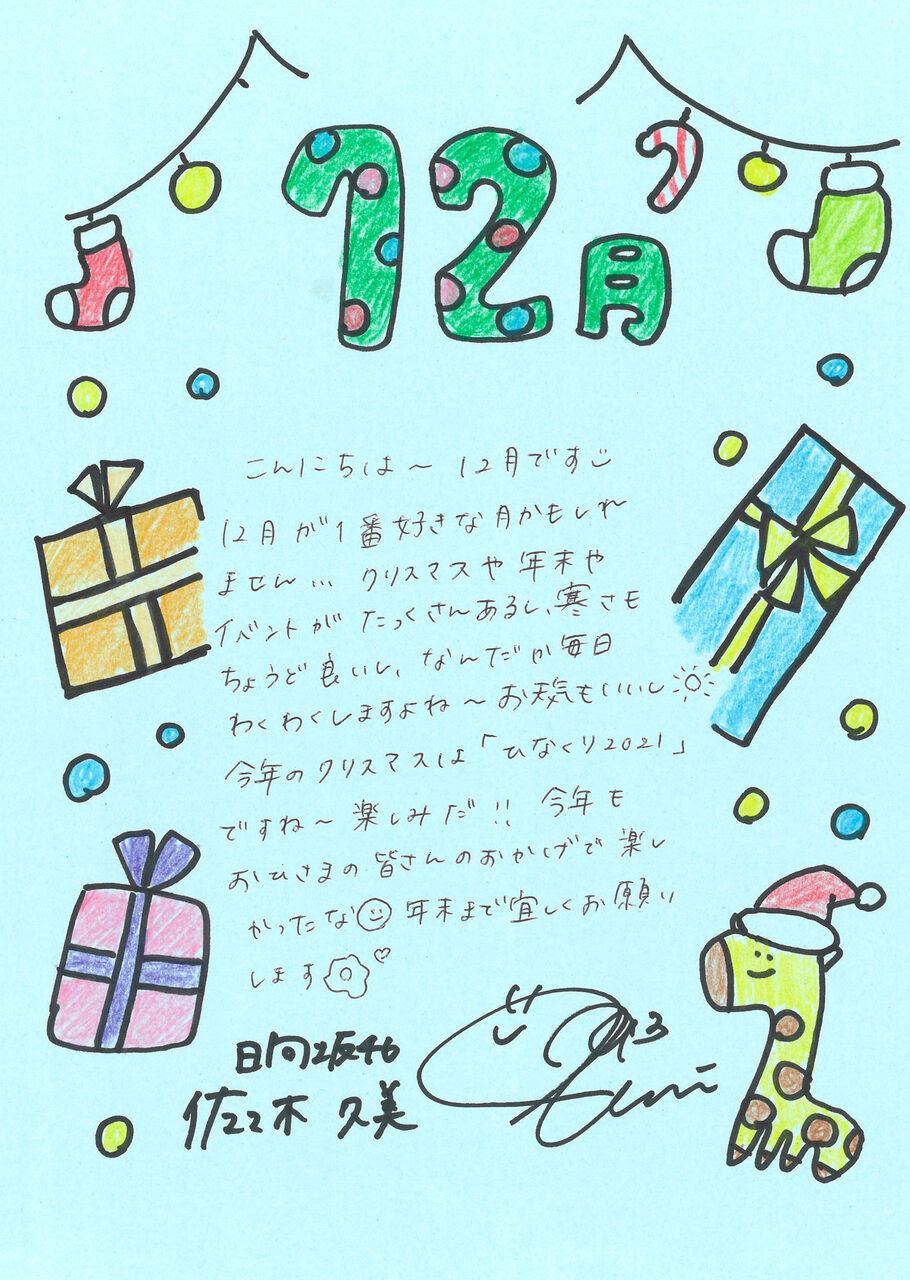 12月
こんにちは〜 12月です
12月が1番好きな月かもしれ
ません… クリスマスや年末や
イベントがたっくさんあるし、寒さも
ちょうど良いし、なんだか毎日
わくわくしますよね〜お天気もいいし
今年のクリスマスは「ひなくり2021」
ですね〜楽しみだ!! 今年も
おひさまの皆さんのおかげで楽し
かったな 年末まで宜しくお願い
します
日向坂46
佐々木 久美